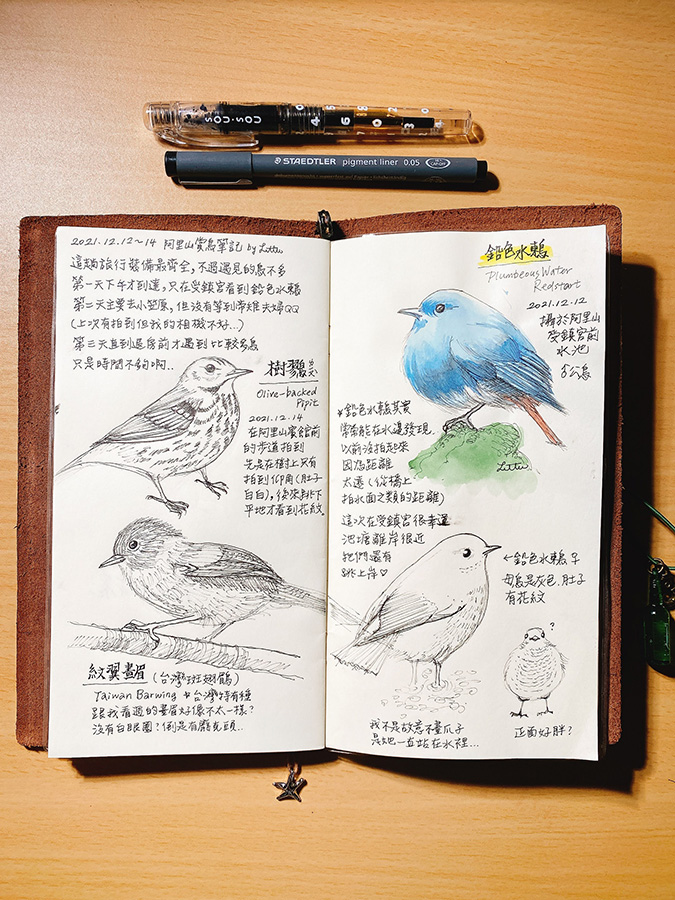 SOU·SOU
STAEDTLER pigment liner 0.05
2021.12.12~14 阿里山賞鳥筆記 by Littu
這趟旅行裝備最齊全,不過遇見的鳥不多
第一天下午才到達,只在受鎮宮看到鉛色水鶇
第二天主要去小笠原,但沒有等到帝雉夫婦QQ
(上次有拍到但我的相機不好...)
第三天直到退房前才遇到比較多鳥
只是時間不夠啊..
樹鷚
Olive-backed
Pipit
2021.12.14
在阿里山賓館前
的步道拍到
先是在樹上只有
拍到仰角(肚子
白白),後來跳下
平地才看到花紋
紋翼畫眉 (台灣斑翅鶥)
Taiwan Barwing *台灣特有種
跟我看過的畫眉好像不太一樣?
沒有白眼圈?倒是有龐克頭..
鉛色水鶇
Plumbeous Water
Redstart
2021.12.12
攝於阿里山
受鎮宮前
水池
♂公鳥
Littu
*鉛色水鶇其實
常常能在水邊發現
以前沒拍起來
因為距離
太遠(從橋上
拍水面之類的距離)
這次在受鎮宮很幸運
池塘離岸很近
牠們還有
跳上岸♡
←鉛色水鶇 ♀
母鳥是灰色,肚子
有花紋
?
正面好胖?
我不是故意不畫爪子
是她一直站在水裡...